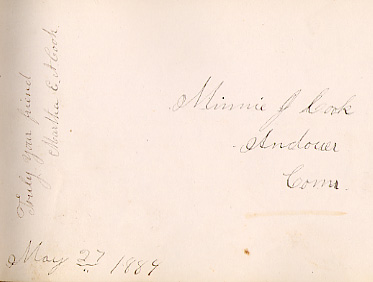 Minnie J Cook
Andover
Conn.
May 27 1889
Truly your friend
Martha E. A Cook